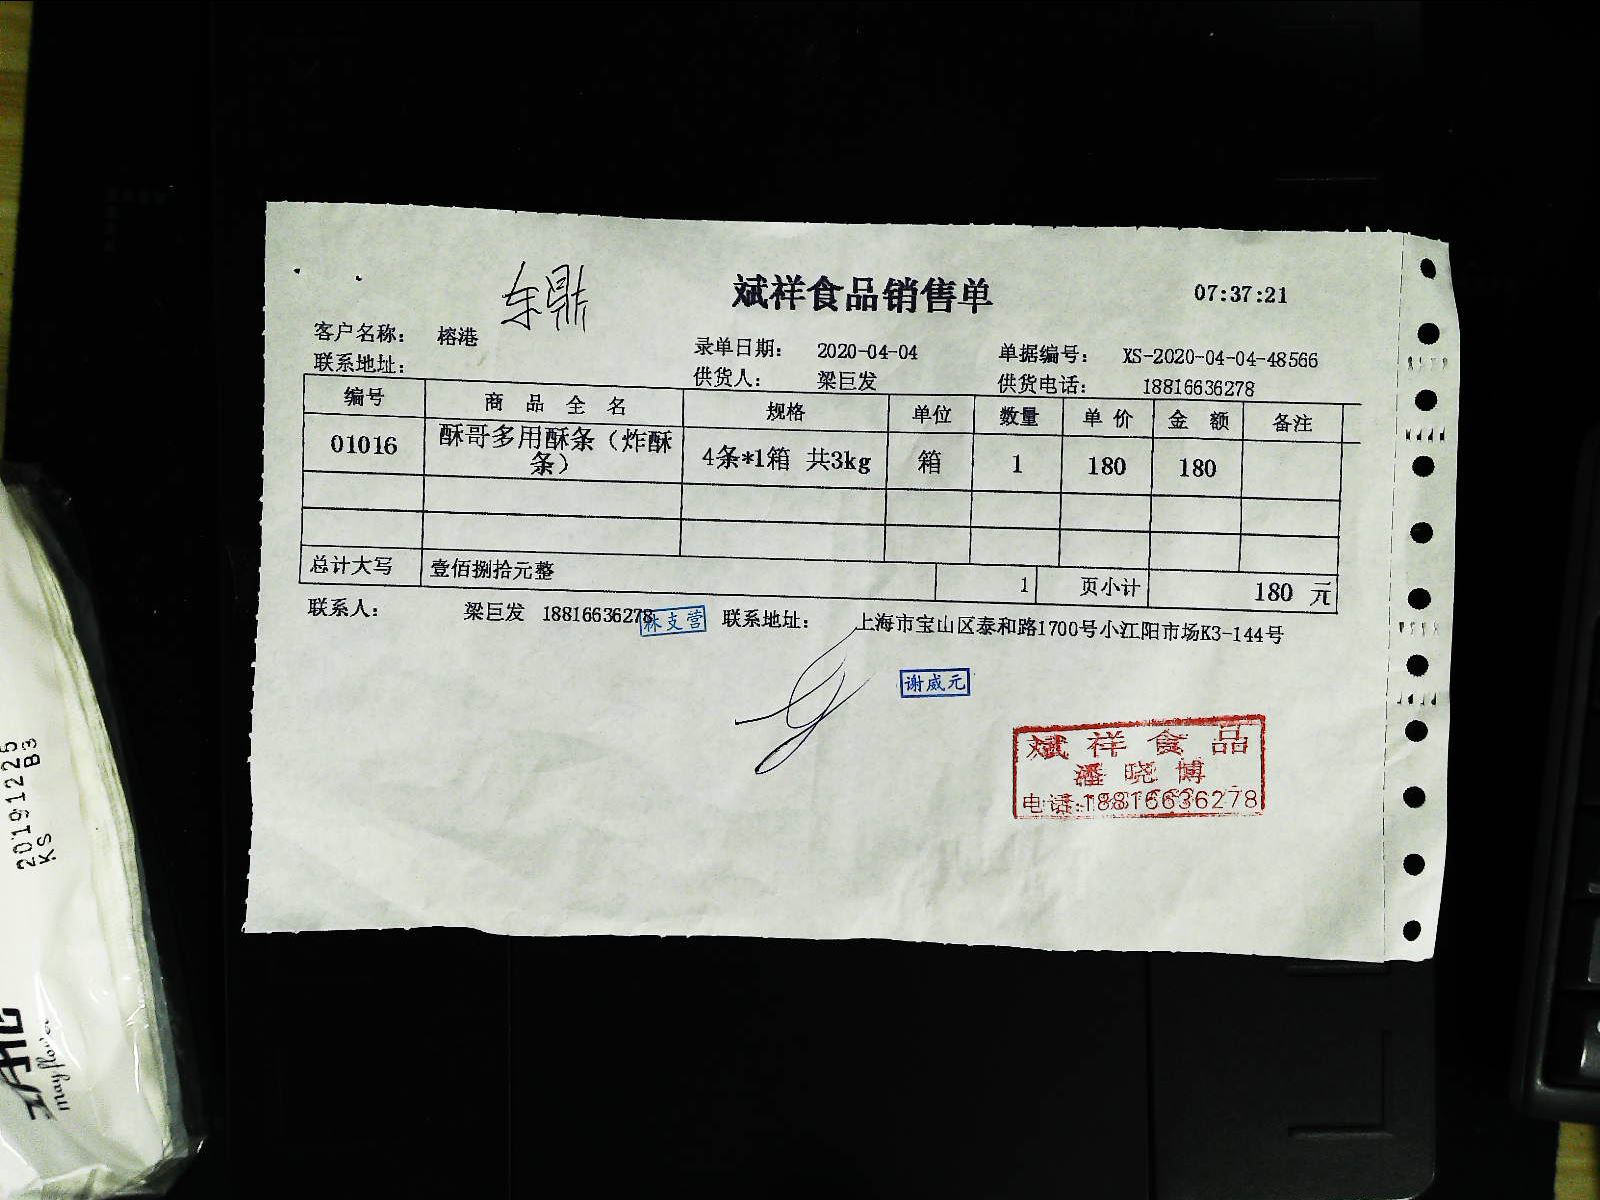 东鼎
斌祥食品销售单
07:37:21
客户名称： 榕港
录单日期： 2020-04-04
单据编号： XS-2020-04-04-48566
联系地址：
供货人： 梁巨发
供货电话： 18816636278
编号 商品全名 规格 单位 数量 单价 金额 备注
01016 酥哥多用酥条（炸酥 4条*1箱 共3kg 箱 1 180 180
条）
总计大写 壹佰捌拾元整 1 页小计 180 元
联系人： 梁巨发 18816636278 联系地址： 上海市宝山区泰和路1700号小江阳市场K3-144号
林支营
谢威元
斌祥食品
潘晓博
电话:18816636278
20191225
KS B3
mayflower